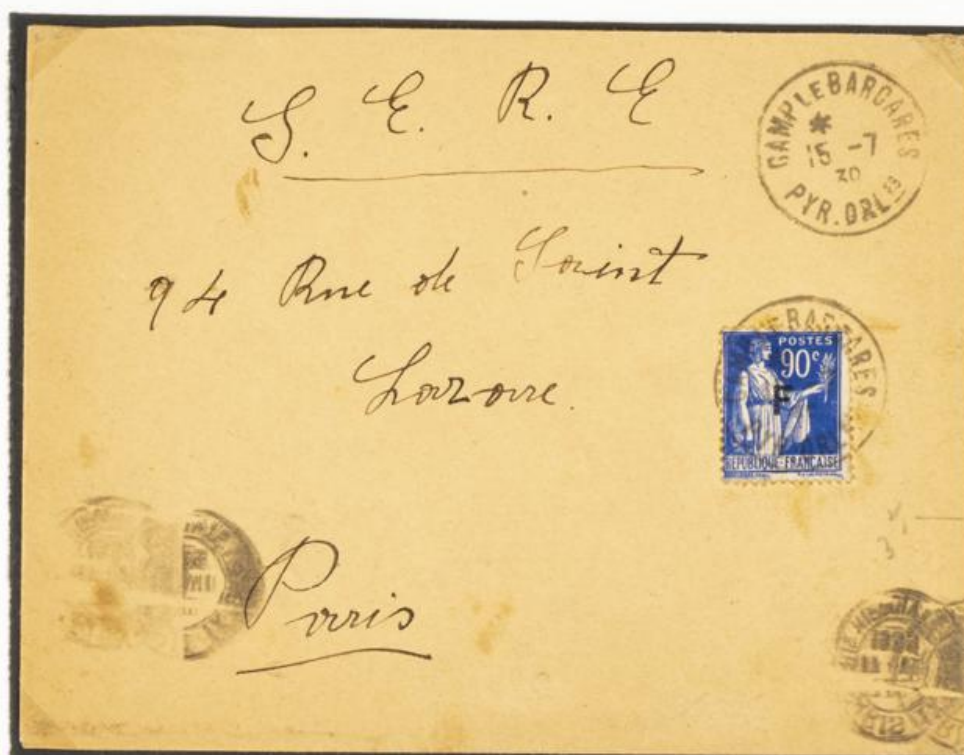 S. E. R. E
CAMP LE BARCARES
*
15 -7
39
PYR. ORLES
94 Rue de Saint
Lazare.
POSTES
90c
F
REPUBLIQUE FRANÇAISE
BARCARES
Paris